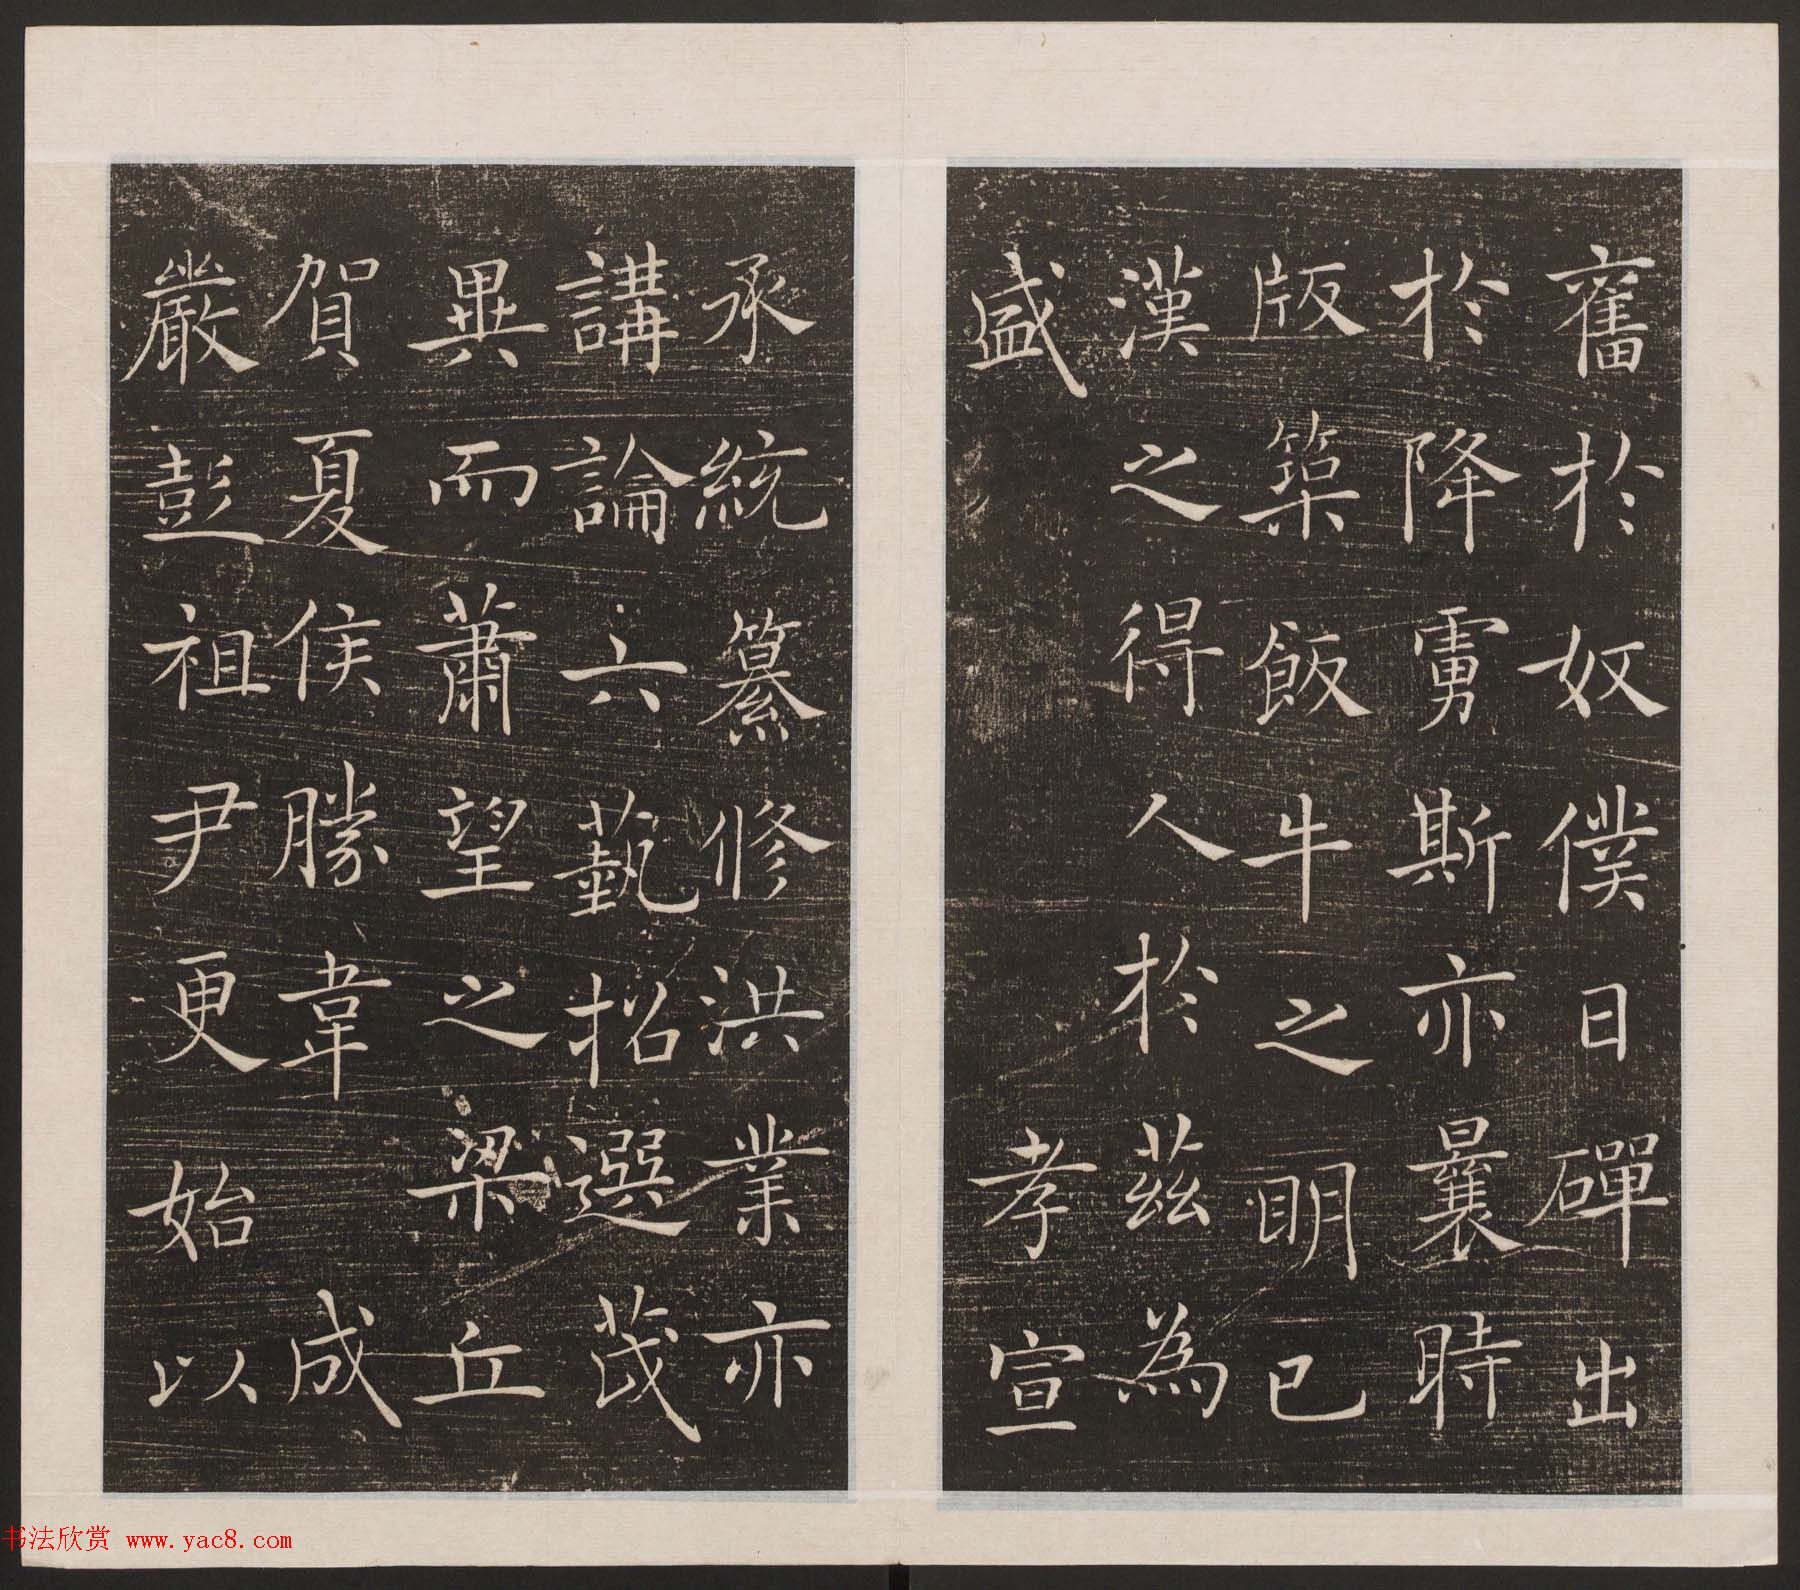 奮於奴僕日磾出
於降虜斯亦曩時
版築飯牛之明已
漢之得人於茲為
盛 孝宣
承統纂修洪業亦
講論六藝招選茂
異而蕭望之梁丘
賀夏侯勝韋成
嚴彭祖尹更始以
书法欣赏 www.yac8.com